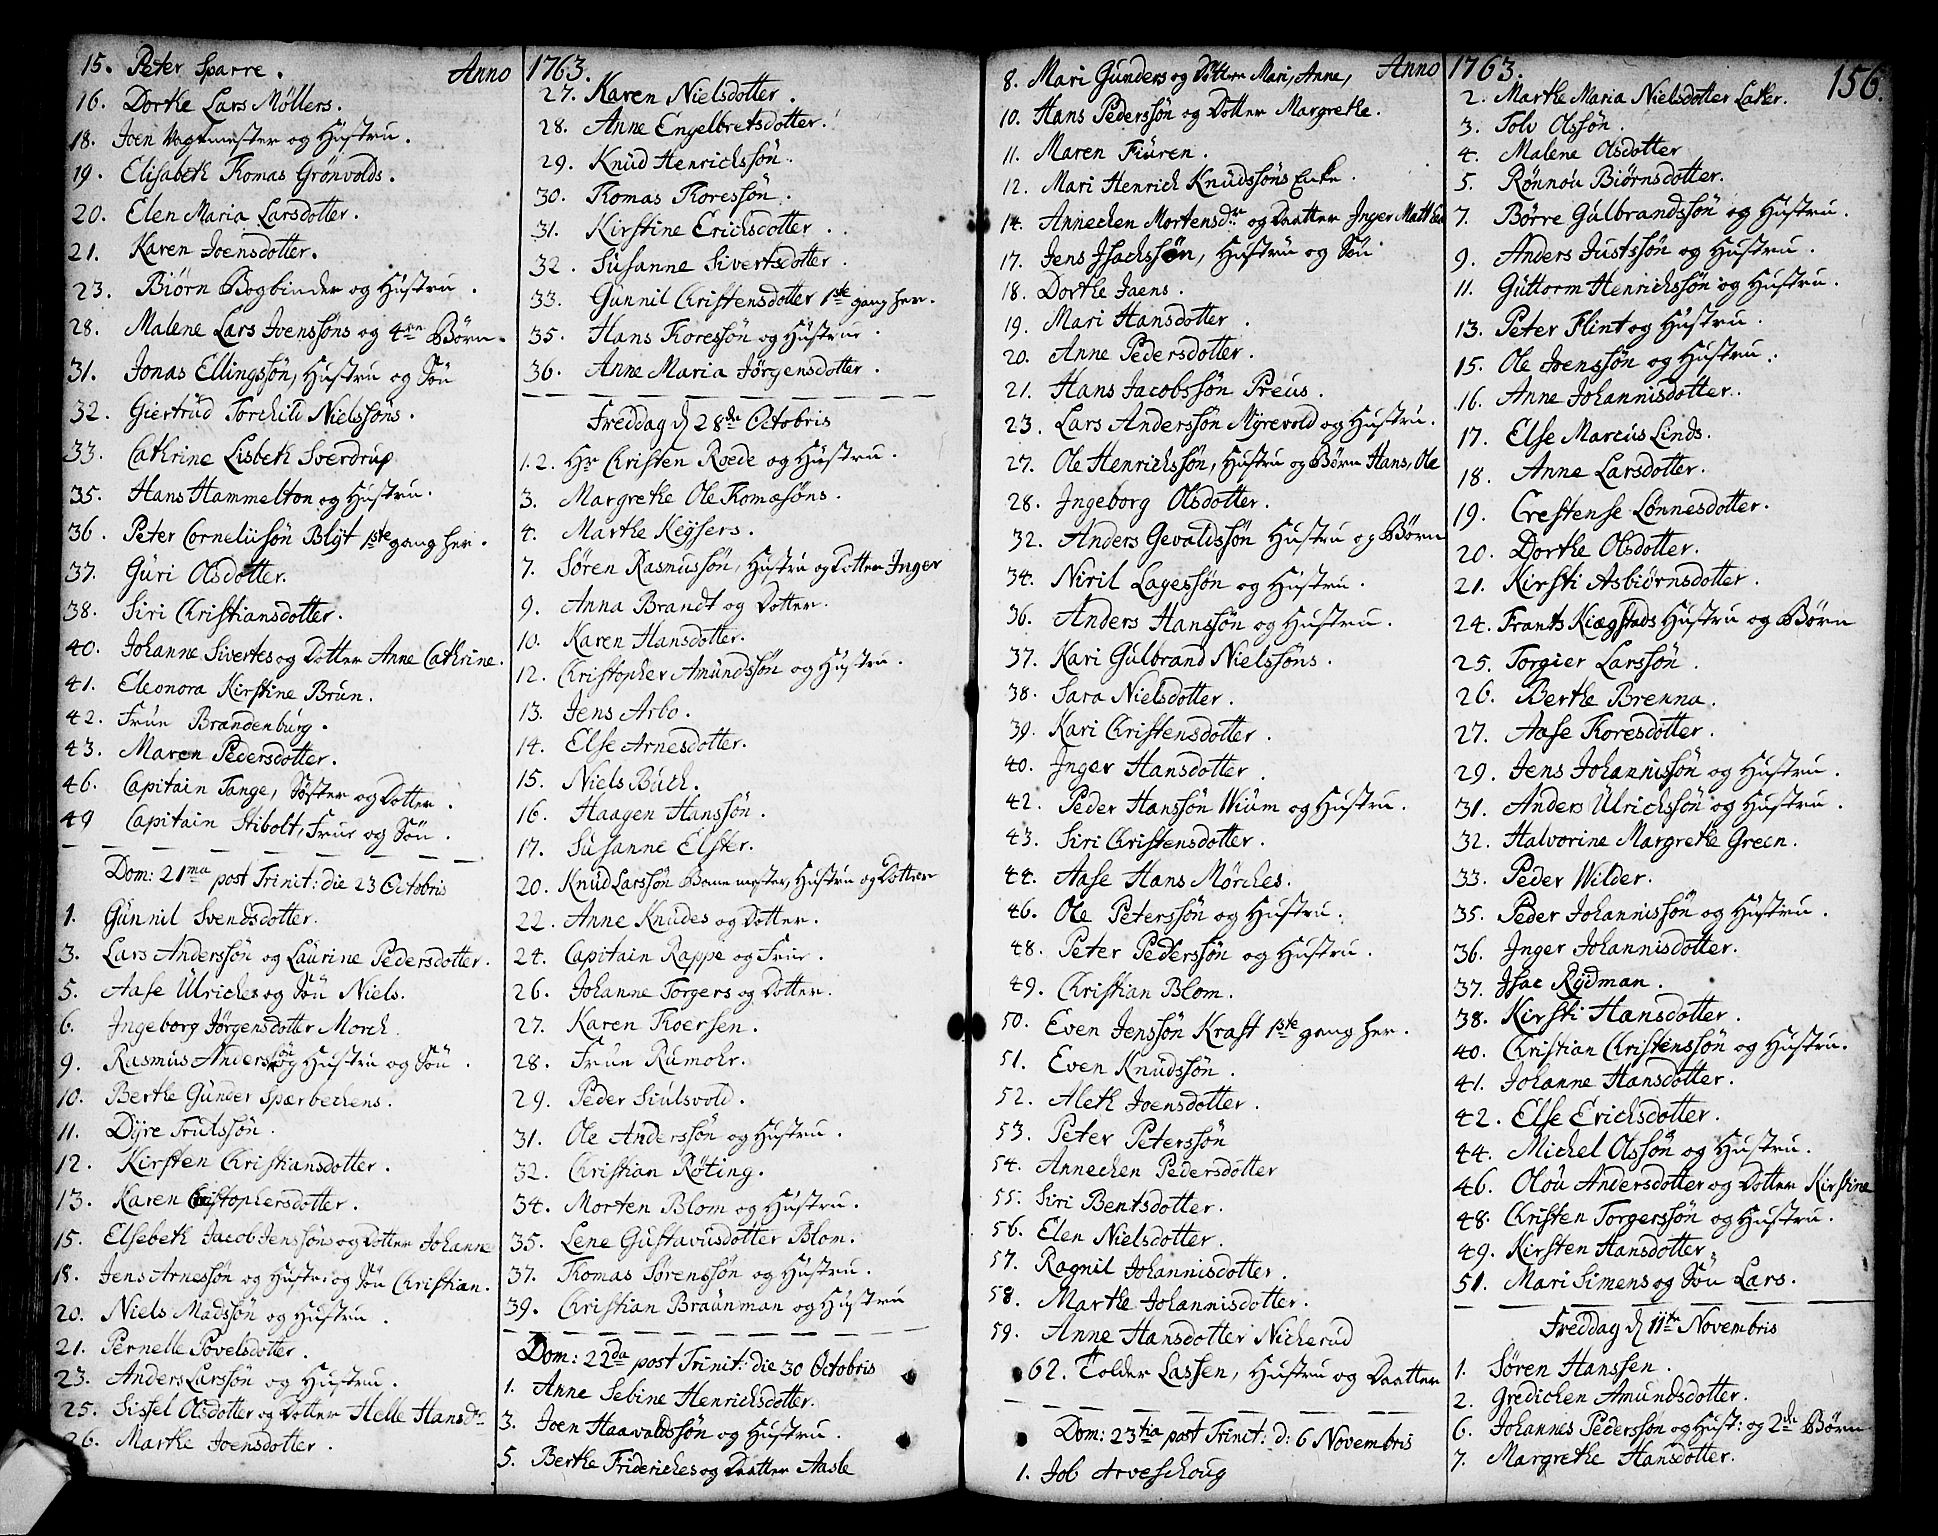 Anno 1763.
15. Peter Sparre.
16. Dorthe Lars Møllers.
18. Joen Vagtmester og Hustru.
19. Elisabeth Thomas Grönvolds.
20. Elen Maria Larsdotter.
21. Karen Joensdotter.
23. Biörn Bogbinder og Hustru.
28. Malene Lars Joenssöns og 4re Börn.
31. Jonas Ellingssön, Hustru og Sön
32. Giertrud Torchild Nielssöns.
33. Cathrine Lisbeth Sverdrup
35. Hans Hammelton og Hustru.
36. Peter Corneliisön Blyt 1ste gang her.
37. Guri Olsdotter.
38. Siri Christiansdotter.
40. Johanne Sivertes og Dotter Anne Cathrine.
41. Eleonora Kirstine Brun.
42. Frue Brandenburg.
43. Maren Pedersdotter.
46. Capitain Tange, Söster og Dotter.
49 Capitain Stibolt, Frue og Sön.
Dom: 21ma post Trinit: die 23 Octobris
1. Gunnil Svendsdotter.
3. Lars Anderssön og Laurine Pedersdotter.
5. Aase Ulriches og Sön Niels.
6. Ingeborg Jörgensdotter Morch.
9. Rasmus Anderssön og Hustru og Sön.
10. Berthe Gunder Spærbechens.
11. Dyre Trulssön.
12. Kirsten Christiansdotter.
13. Karen Christophersdotter.
15. Elsebeth Jacob Jenssöns og Dotter Johanne
18. Jens Arnessön og Hustr: og Sön Christian.
20. Niels Madssön og Hustru.
21. Pernelle Povelsdotter.
23. Anders Larssön og Hustru.
25. Sissel Olsdotter og Dotter Helle Hansdr
26. Marthe Joensdotter.
27. Karen Nielsdotter.
28. Anne Engelbretsdotter.
29. Knud Henrichssön.
30. Thomas Thoressön.
31. Kirstine Erichsdotter.
32. Susanne Sivertsdotter.
33. Gunnil Christensdotter 1ste gang her.
35. Hans Thoressön og Hustrue.
36. Anne Maria Jörgensdotter.
Freddag d 28de Octobris
1.2. Hr Christen Roede og Hustru.
3. Margrethe Ole Thomæsöns.
4. Marthe Keysers.
7. Sören Rasmussön, Hustru og Dotter Inger
9. Anna Brandt og Dotter.
10. Karen Hansdotter.
12. Christopher Amundssön og Hustru.
13. Jens Arbo.
14. Else Arnesdotter.
15. Niels Buch.
16. Haagen Hanssön.
17. Susanne Elster.
20. Knud Larssön Bommester, Hustru og Dotter
22. Anne Knudes og Dotter.
24. Capitain Rappe og Frue.
26. Johanne Torgers og Dotter.
27. Karen Thoersen.
28. Frue Rumohr.
29. Peder Siulsvold.
31. Ole Anderssön og Hustru.
32. Christian Röting.
34. Morten Blom og Hustru.
35. Lene Gustavusdotter Blom.
37. Thomas Sörenssön og Hustru.
39. Christian Braunman og Hustru
Dom: 22da post Trinit: die 30 Octobris
1. Anne Sebine Henrichsdotter.
3. Joen Haavoldssön og Hustru.
5. Berthe Friderichs og Daatter Aasle
Anno 1763.
156.
8. Mari Gunders og Döttre Mari, Anne,
10. Hans Pederssön og Dotter Margrethe.
11. Maren Fiuren.
12. Mari Henrich Knudssöns Enke.
14. Annechen Mortensdr og Daatter Inger Mathea
17. Jens Isachssön, Hustru og Sön
18. Dorthe Jaens.
19. Mari Hansdotter.
20. Anne Pedersdotter.
21. Hans Jacobssön Preus.
23. Lars Anderssön Myrevold og Hustru.
27. Ole Henrichssön, Hustru og Börn Hans, Ole
28. Ingeborg Olsdotter.
32. Anders Gevaldssön Hustru og Börn
34. Niril Lagessön og Hustru.
36. Anders Hanssön og Hustru.
37. Kari Gulbrand Nielssöns.
38. Sara Nielsdotter.
39. Kari Christensdotter.
40. Inger Hansdotter.
42. Peder Hanssön Wium og Hustru.
43. Siri Christensdotter.
44. Aase Hans Mörches.
46. Ole Peterssön og Hustru.
48. Peter Pederssön og Hustru.
49. Christian Blom.
50. Even Jenssön Kraft 1ste gang her.
51. Even Knudssön.
52. Aleth Joensdotter.
53. Peter Peterssön
54. Annechen Pedersdotter
55. Siri Bentsdotter.
56. Elen Nielsdotter.
57. Ragnil Johannisdotter.
58. Marthe Johannisdotter.
59. Anne Hansdotter Nicherud
62. Tolder Lassen, Hustru og Daatter
Dom: 23tia post Trinit: d: 6 Novembris
1. Job Arveschoug
2. Marthe Maria Nielsdotter Laker.
3. Tolv Olssön.
4. Malene Olsdotter
5. Rönnou Biörnsdotter.
7. Börre Gulbrandssön og Hustru.
9. Anders Justssön og Hustru.
11. Guttorm Henrichssön og Hustru.
13. Peter Flint og Hustru.
15. Ole Joenssön og Hustru.
16. Anne Johannisdotter.
17. Else Marcus Linds.
18. Anne Larsdotter.
19. Crestense Lönnesdotter.
20. Dorthe Olsdotter.
21. Kirsti Asbiörnsdotter.
24. Frants Kiægstads Hustru og Börn
25. Torgier Larssön.
26. Berthe Brenna.
27. Aase Thoresdotter.
29. Jens Johannissön og Hustru.
31. Anders Ulrichssön og Hustru.
32. Halvorine Margrethe Green.
33. Peder Wilder.
35. Peder Johannissön og Hustru.
36. Inger Johannisdotter.
37. Isac Rydman.
38. Kirsti Hansdotter.
40. Christian Christenssön og Hustru.
41. Johanne Hansdotter.
42. Else Erichsdotter.
44. Michel Olssön og Hustru.
46. Olou Andersdotter og Dotter Kirstine
48. Christen Torgerssön og Hustru.
49. Kirsten Hansdotter
51. Mari Simens og Sön Lars.
Freddag d 11te Novembris
1. Sören Hanssen.
2. Gredichen Amundsdotter.
6. Johannes Pederssön og Hust: og 2de Börn
7. Margrethe Hansdotter.